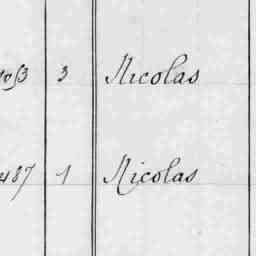 3 Nicolas
487 1 Nicolas